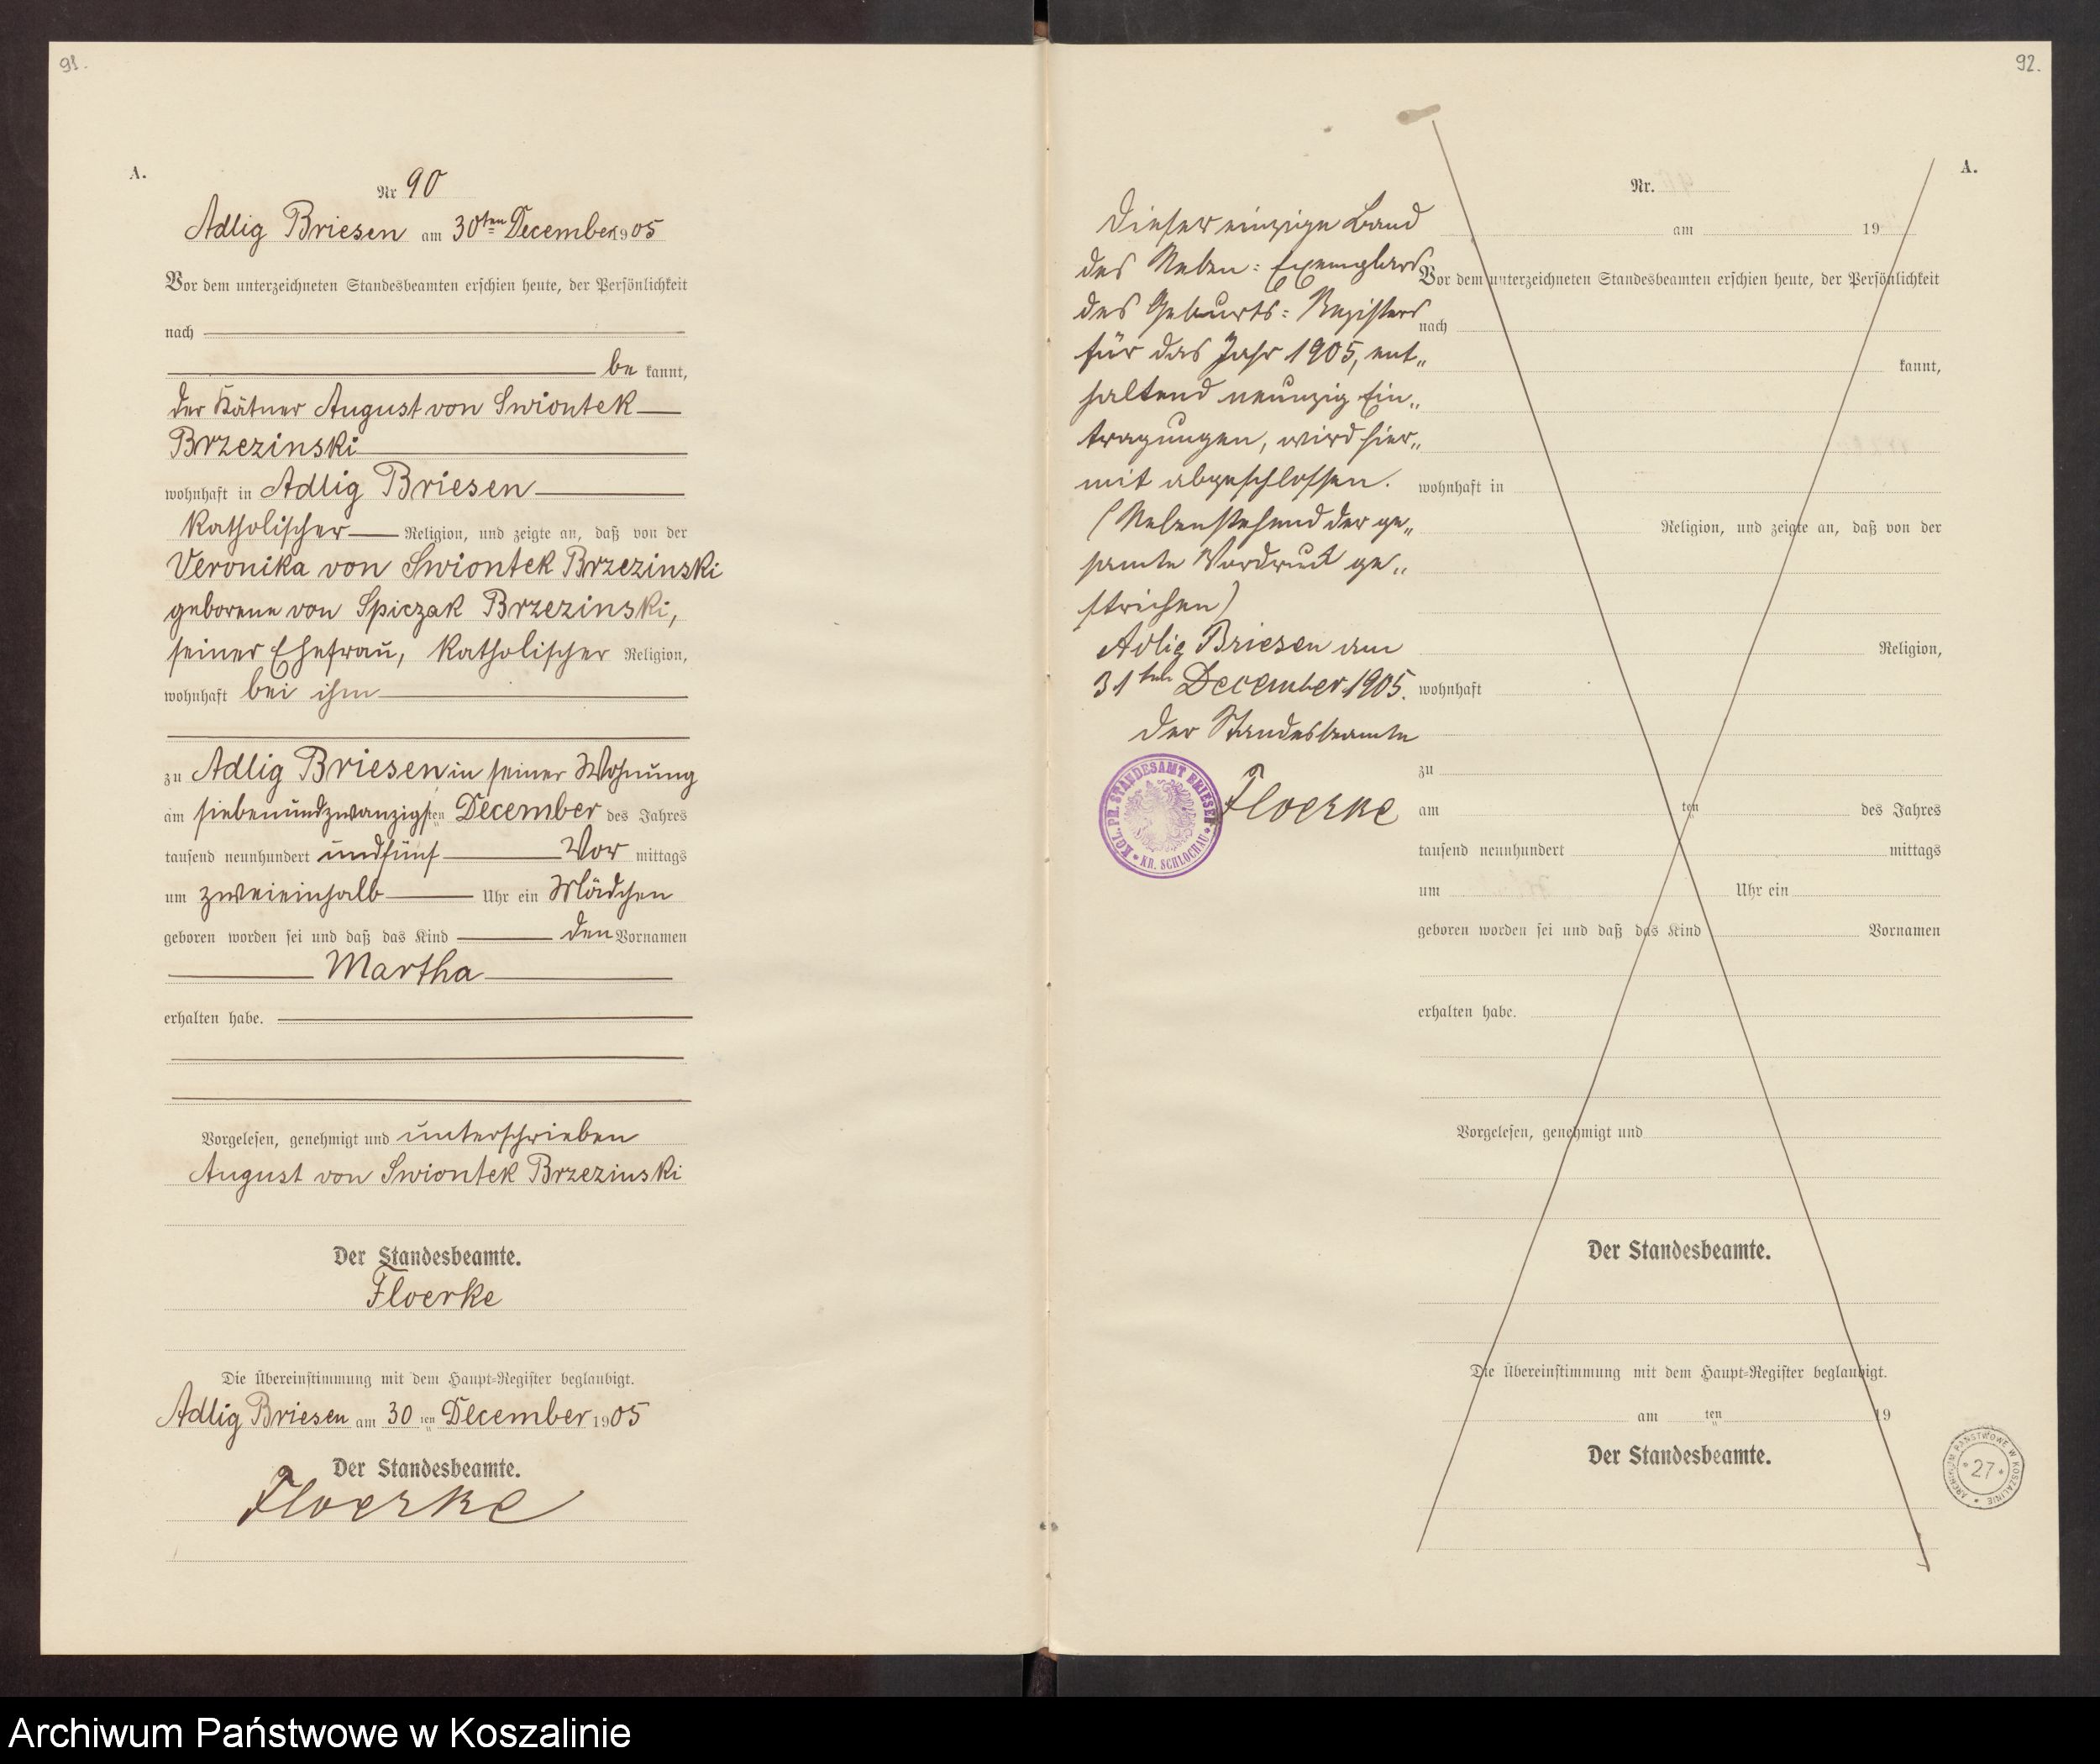 91.
A.
Nr 90
Adlig Briesen am 30ten December 1905
Vor dem unterzeichneten Standesbeamten erschien heute, der Persönlichkeit
nach
be kannt,
der Kätner August von Swiontek
Brzezinski
wohnhaft in Adlig Briesen
katholischer Religion, und zeigte an, daß von der
Veronika von Swiontek Brzezinski
geborene von Spiczak Brzezinski,
seiner Ehefrau, katholischer Religion,
wohnhaft bei ihm
zu Adlig Briesen in seiner Wohnung
am siebenundzwanzigsten December des Jahres
tausend neunhundert undfünf Vor mittags
um zweieinhalb Uhr ein Mädchen
geboren worden sei und daß das Kind den Vornamen
Martha
erhalten habe.
Vorgelesen, genehmigt und unterschrieben
August von Swiontek Brzezinski
Der Standesbeamte.
Floerke
Die Übereinstimmung mit dem Haupt-Register beglaubigt.
Adlig Briesen am 30 ten December 1905
Der Standesbeamte.
Floerke
92.
A.
Dieser einzige Band
des Neben-Exemplars
des Geburts-Registers
für das Jahr 1905, ent-
haltend neunzig Ein-
tragungen, wird hier-
mit abgeschlossen.
(Nebenstehend der ge-
samte Vordruck ge-
strichen)
Adlig Briesen am
31ten December 1905.
Der Standesbeamte
Floerke
KGL. PR. STANDESAMT BRIESEN
KR. SCHLOCHAU
Nr.
am 19
Vor dem unterzeichneten Standesbeamten erschien heute, der Persönlichkeit
nach
kannt,
wohnhaft in
Religion, und zeigte an, daß von der
Religion,
wohnhaft
zu
am ten des Jahres
tausend neunhundert mittags
um Uhr ein
geboren worden sei und daß das Kind Vornamen
erhalten habe.
Vorgelesen, genehmigt und
Der Standesbeamte.
Die Übereinstimmung mit dem Haupt-Register beglaubigt.
am ten 19
Der Standesbeamte.
ARCHIWUM PAŃSTWOWE W KOSZALINIE
* 27 *
Archiwum Państwowe w Koszalinie